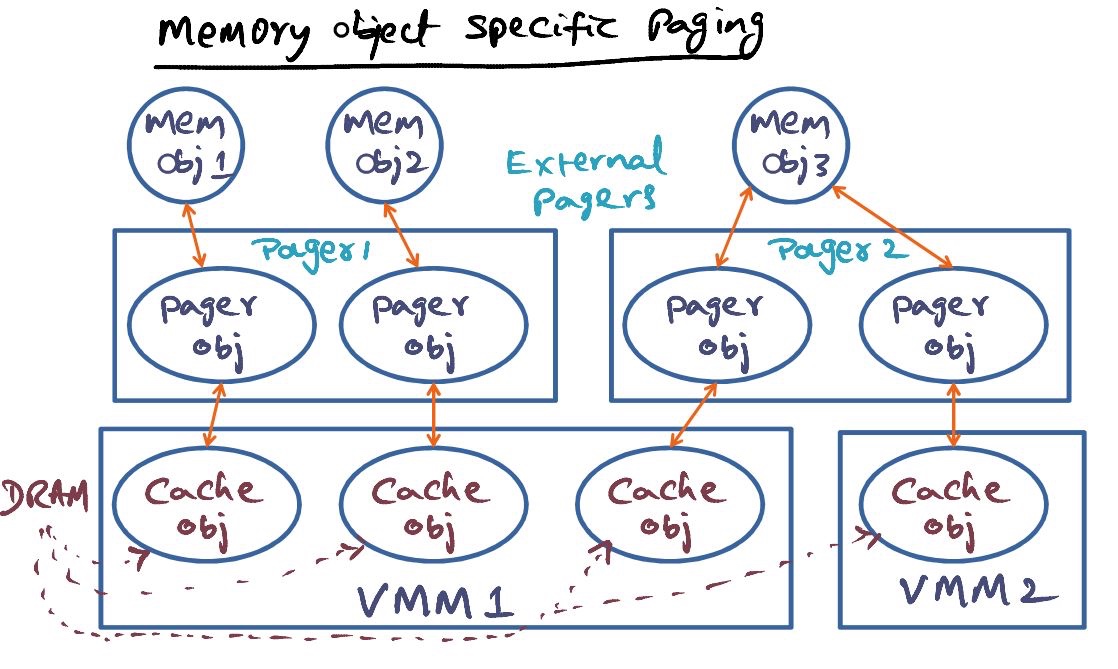 Memory object specific Paging
Mem
obj 1
Mem
obj2
Mem
obj3
External
pagers
Pager 1
Pager 2
pager
obj
pager
obj
pager
obj
pager
obj
DRAM
Cache
obj
Cache
obj
Cache
obj
Cache
obj
VMM 1
VMM 2